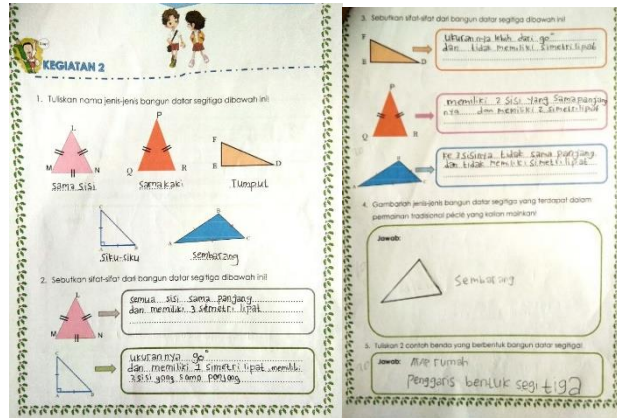 KEGIATAN 2
1. Tuliskan nama jenis-jenis bangun datar segitiga dibawah ini!
L
M
N
sama sisi
P
Q
R
sama kaki
F
E
D
Tumpul
C
A
B
Siku-siku
sembarang
2. Sebutkan sifat-sifat dari bangun datar segitiga dibawah ini!
L
M
N
semua sisi sama panjang
dan memiliki 3 semetri lipat
ukurannya 90°
dan memiliki 1 simetri lipat memiliki
2 sisi yang sama panjang
3. Sebutkan sifat-sifat dari bangun datar segitiga dibawah ini!
F
E
D
Ukurannya lebih dari 90°
dan tidak memiliki simetri lipat
P
Q
R
memiliki 2 sisi yang sama panjang
nya dan memiliki 2 simetri lipat
ke 3 sisinya tidak sama panjang
dan tidak memiliki simetri lipat
4. Gambarlah jenis-jenis bangun datar segitiga yang terdapat dalam
permainan tradisional pécle yang kalian mainkan!
Jawab:
Sembarang
5. Tuliskan 2 contoh benda yang berbentuk bangun datar segitiga!
Jawab: Atap rumah
Penggaris bentuk segitiga